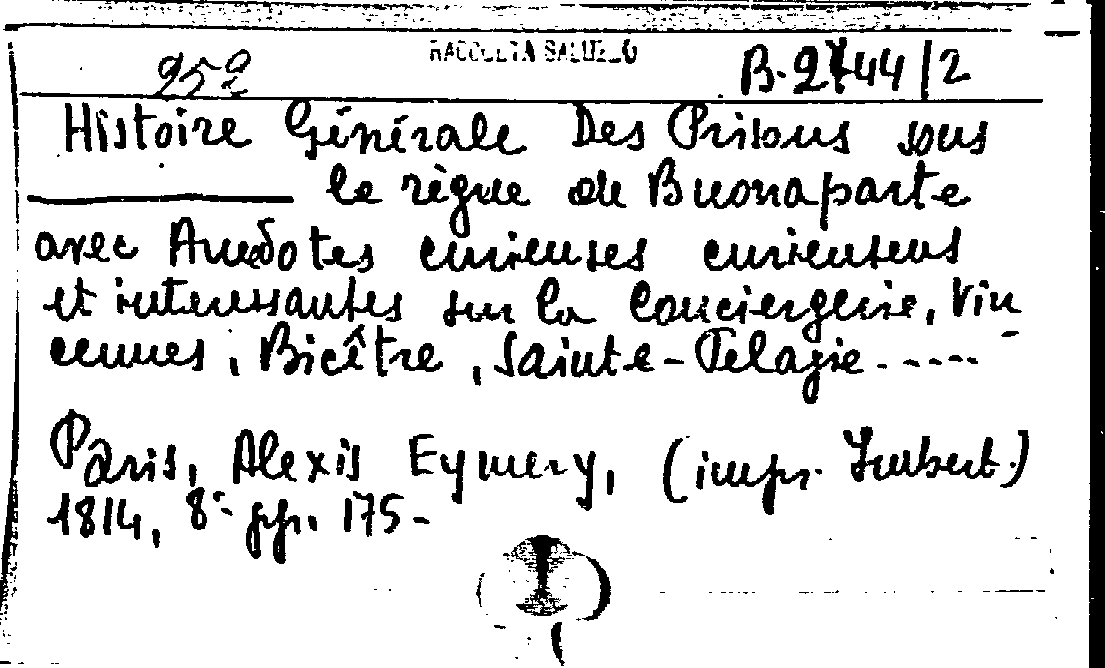 952 RACCOLTA SALUZZO B.2744/2
Histoire Générale Des Prisons sous
le règne de Buonaparte
avec Anecdotes curieuses curieuses
et interessantes sur la Conciergerie, Vin
cennes, Bicêtre, Sainte-Pelagie-----
Paris, Alexis Eymery, (impr. Imbert.)
1814, 8° pp. 175-